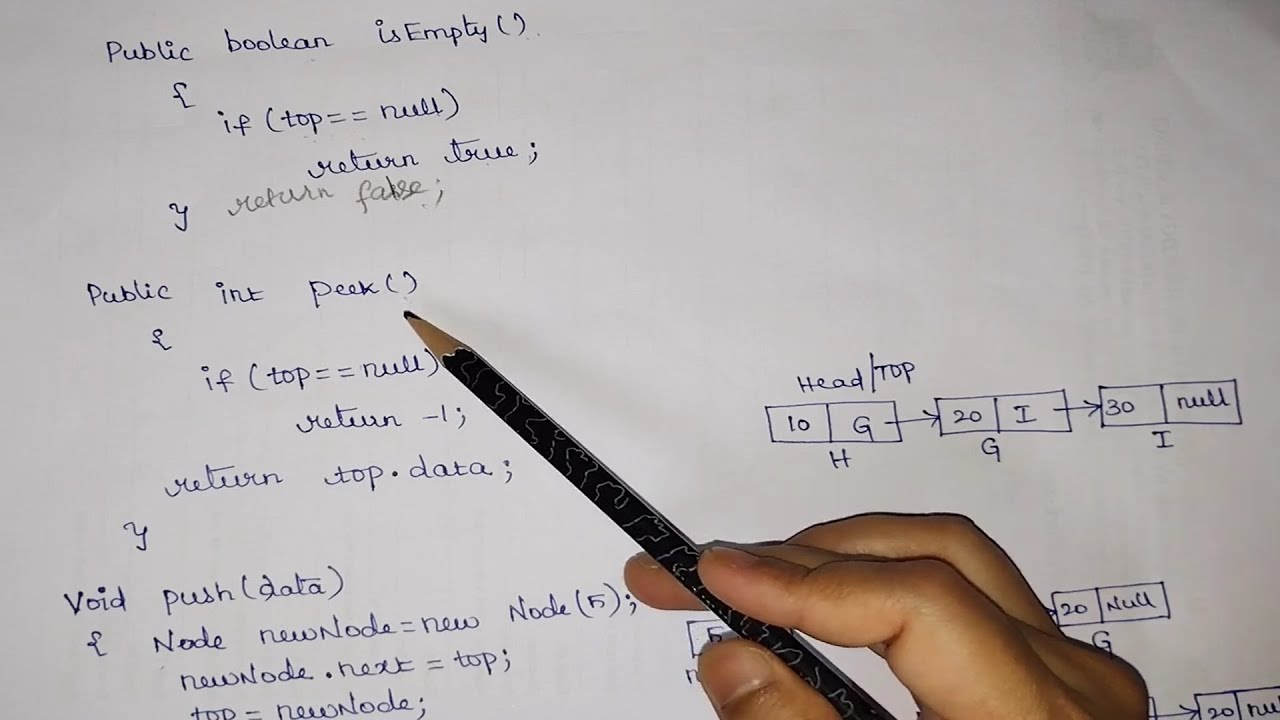 Public boolean isEmpty()
{
if (top == null)
return true;
return false;
}
Public int peek()
{
if (top == null)
return -1;
return top.data;
}
Void push(data)
{ Node newNode = new Node(5);
newNode.next = top;
top = newNode;
Head/TOP
10 G 20 I 30 null
H G I
20 Null
G
5
20